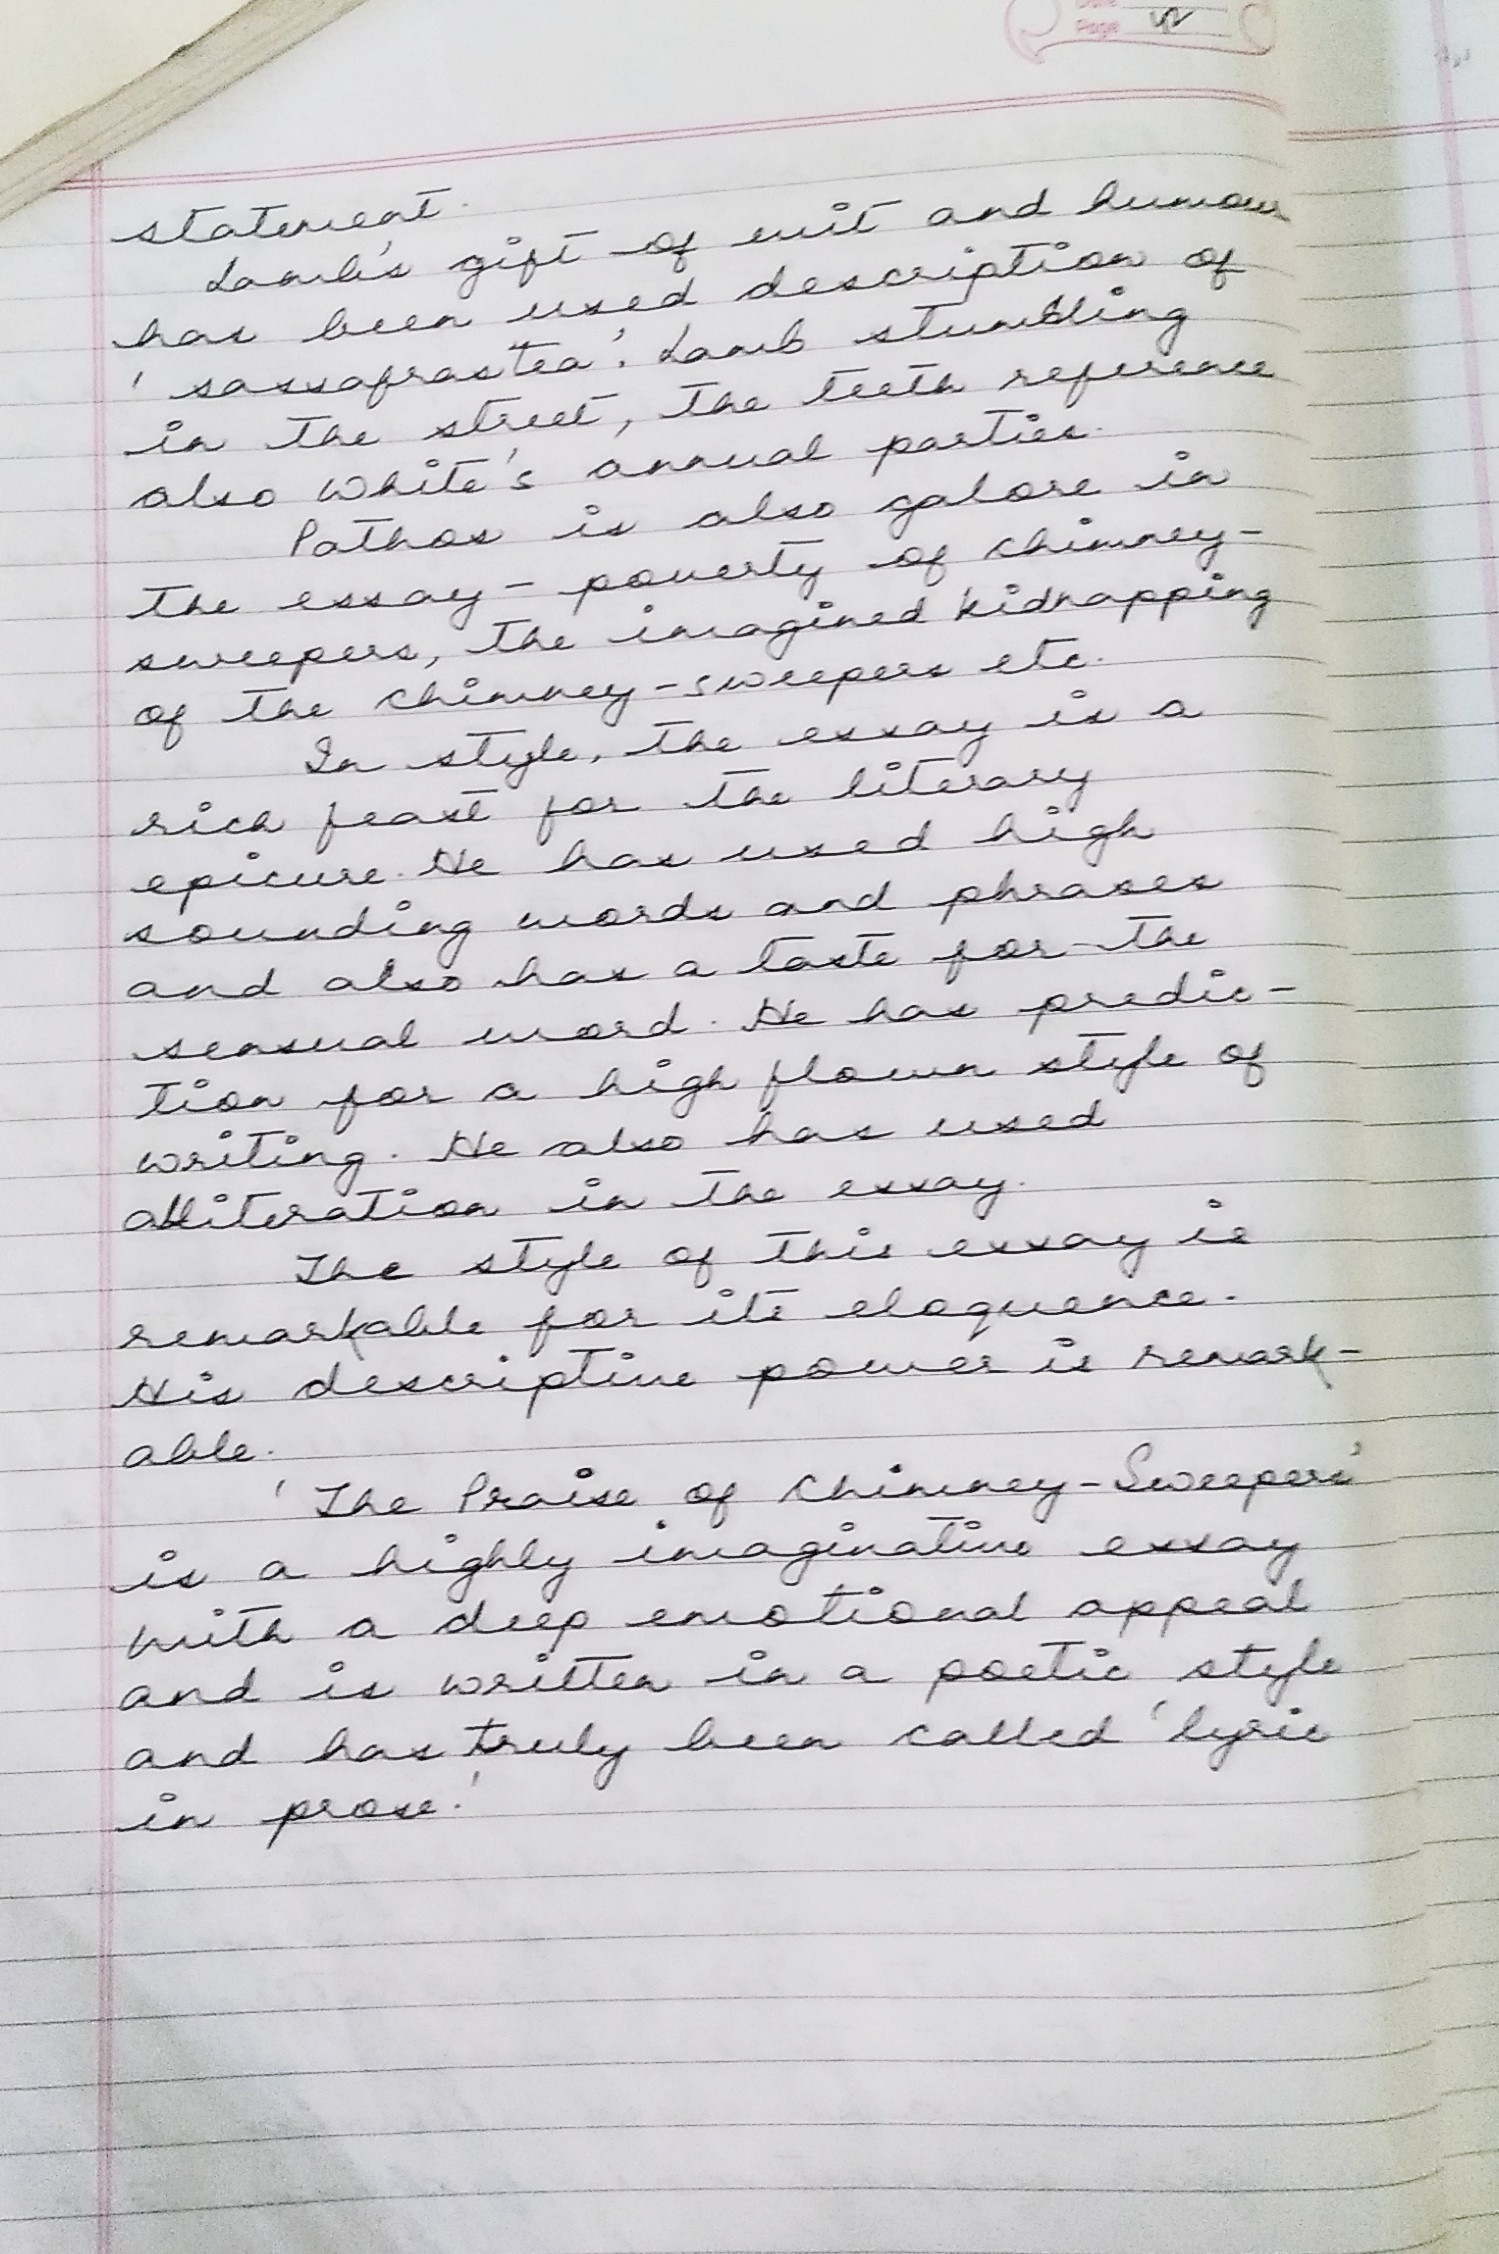 Page
statement.
Lamb's gift of wit and humour
has been used description of
'sassafras tea'. Lamb stumbling
in the street, the teeth reference
also White's annual parties.
Pathos is also galore in
the essay - poverty of chimney-
sweepers, the imagined kidnapping
of the chimney-sweepers etc.
In style, the essay is a
rich feast for the literary
epicure. He has used high
sounding words and phrases
and also has a taste for the
sensual word. He has predic-
tion for a high flown style of
writing. He also has used
alliteration in the essay.
The style of this essay is
remarkable for its eloquence.
His descriptive power is remark-
able.
'The Praise of Chimney-Sweepers'
is a highly imaginative essay
with a deep emotional appeal
and is written in a poetic style
and has truly been called 'lyric
in prose.'